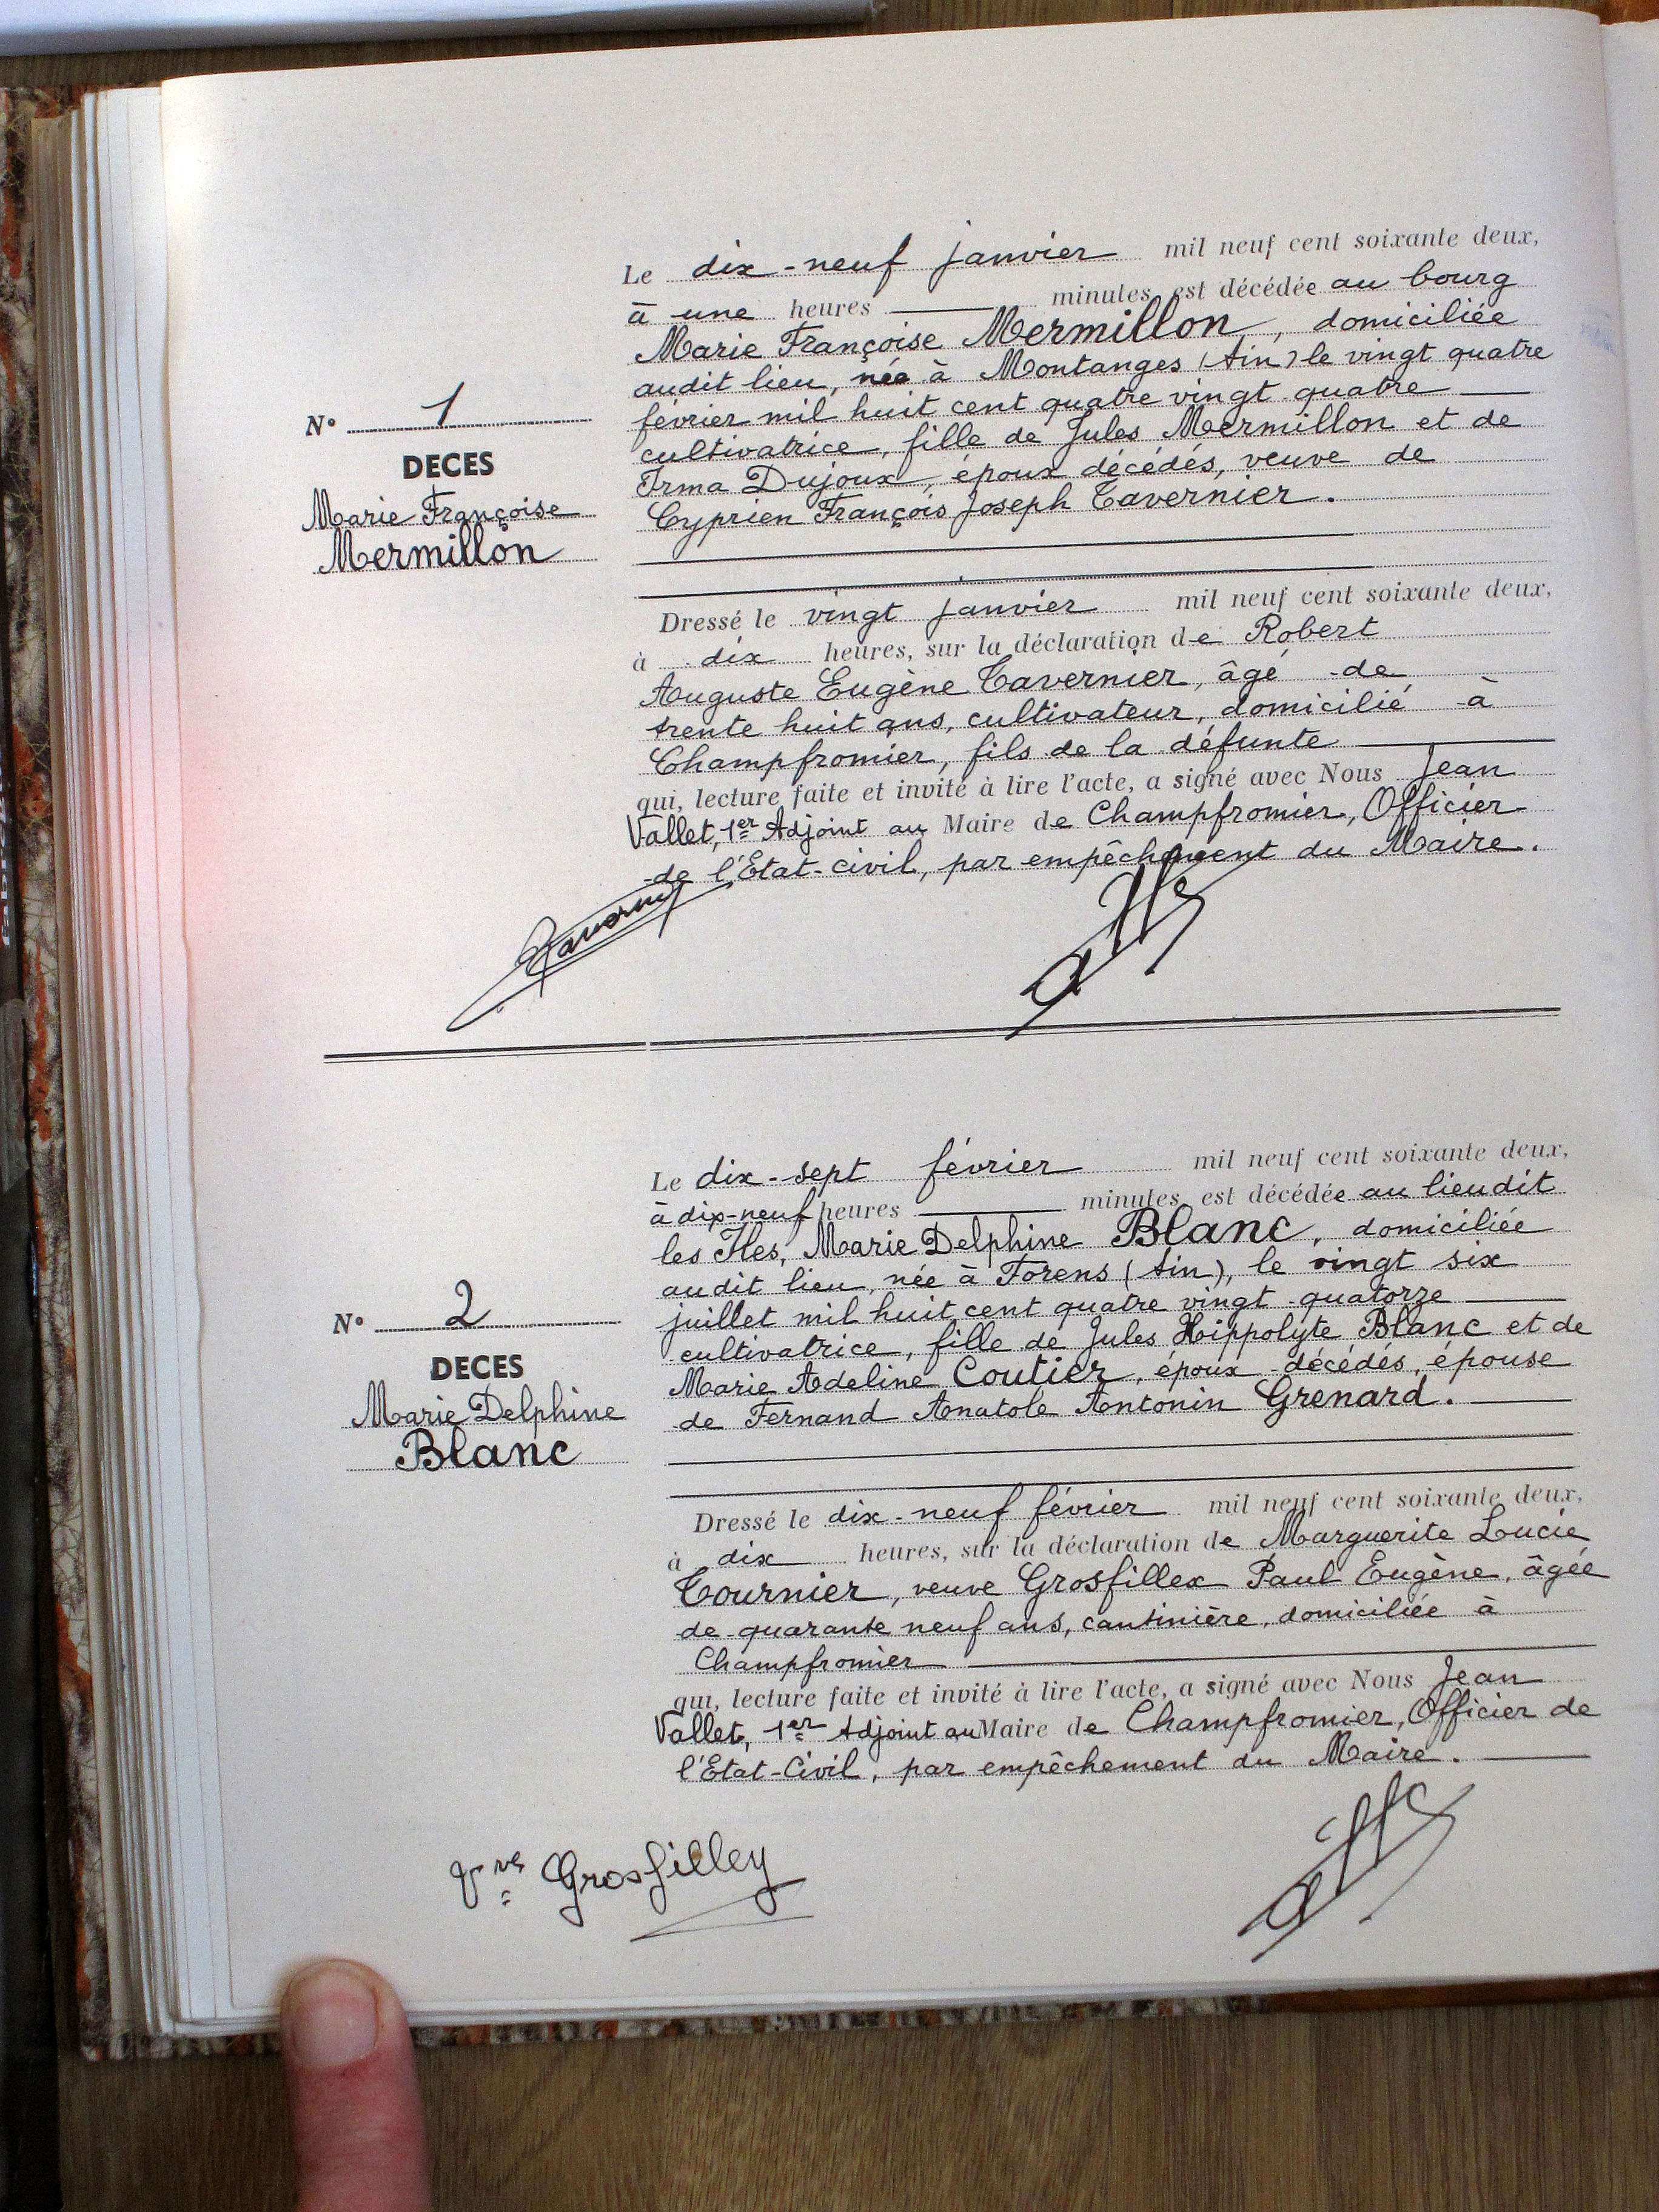 Le dix-neuf janvier mil neuf cent soixante deux,
à une heures minutes, est décédée au bourg
Marie Françoise Mermillon, domiciliée
audit lieu, née à Montanges (Ain) le vingt quatre
février mil huit cent quatre vingt quatre
cultivatrice, fille de Jules Mermillon et de
Irma Dujoux, époux décédés, veuve de
Cyprien François Joseph Tavernier.
N° 1
DECES
Marie Françoise
Mermillon
Dressé le vingt janvier mil neuf cent soixante deux,
à dix heures, sur la déclaration de Robert
Auguste Eugène Tavernier, âgé de
trente huit ans, cultivateur, domicilié à
Champfromier, fils de la défunte
qui, lecture faite et invité à lire l'acte, a signé avec Nous Jean
Vallet, 1er Adjoint au Maire de Champfromier, Officier
de l'Etat-civil, par empêchement du Maire.
Le dix-sept février mil neuf cent soixante deux,
à dix-neuf heures minutes, est décédée au lieudit
les Iles, Marie Delphine Blanc, domiciliée
audit lieu, née à Forens (Ain), le vingt six
juillet mil huit cent quatre vingt quatorze
cultivatrice, fille de Jules Hippolyte Blanc et de
Marie Adeline Coutier, époux décédés, épouse
de Fernand Anatole Antonin Grenard.
N° 2
DECES
Marie Delphine
Blanc
Dressé le dix-neuf février mil neuf cent soixante deux,
à dix heures, sur la déclaration de Marguerite Lucie
Tournier, veuve Grosfillex Paul Eugène, âgée
de quarante neuf ans, cantinière, domiciliée à
Champfromier
qui, lecture faite et invité à lire l'acte, a signé avec Nous Jean
Vallet, 1er Adjoint au Maire de Champfromier, Officier de
l'Etat-Civil, par empêchement du Maire.
Vve Grosfilley